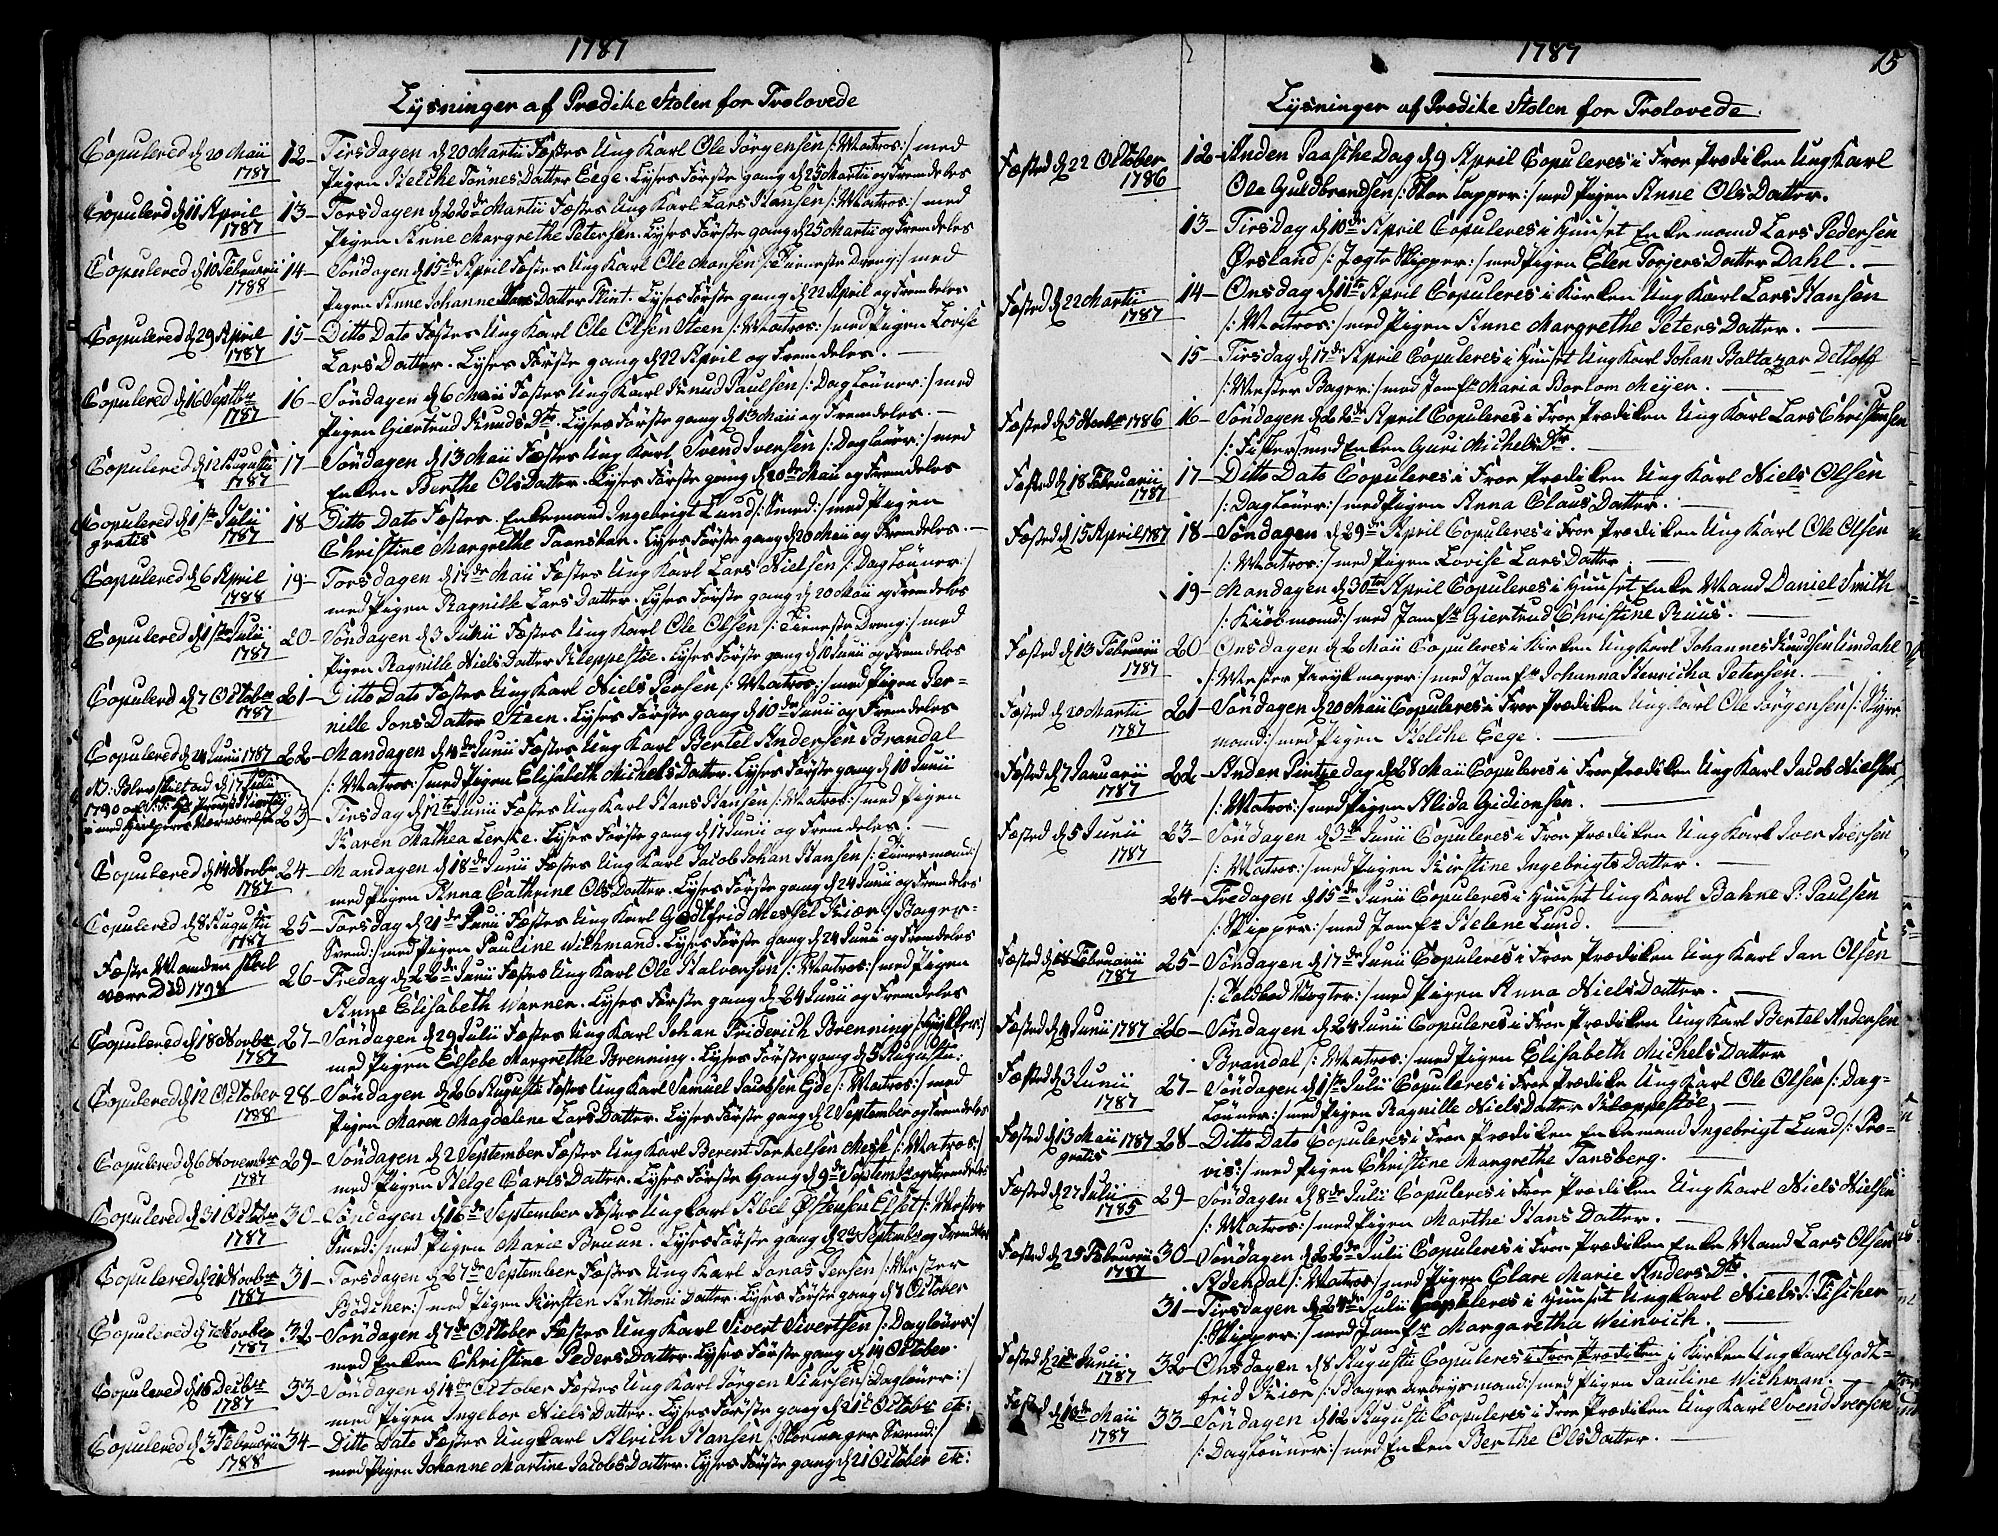 1787
Lysninger af Prædike Stolen for Trolovede
Copulered d 20 Maii 1787
12- Tirsdagen d 20 Martii Fæstes Ung Karl Ole Jörgensen /: Matros:/ med
Pigen Helche Tönnes Datter Eege. Lyses Förste gang d 25 Martii og Fremdeles
Copulerd d 11 April 1787
13- Torsdagen d 22de Martii Fæstes Ung Karl Lars Hansen /: Matros:/ med
Pigen Anne Margrethe Petersen. Lyses Förste gang d 25 Martii og Fremdeles
Copulered d 10 Februarii 1788
14- Söndagen d 15de April Fæstes Ung Karl Ole Monsen /: Tieneste Dreng:/ med
Pigen Anne Johanne Datter Flint. Lyses Förste gang d 22 April og Fremdeles
Copulered d 29 April 1787
15- Ditto Dato Fæstes Ung Karl Ole Olsen Steen /: Matros:/ med Pigen Lovise
Lars Datter. Lyses Förste gang d 22 April og Fremdeles.
Copulered d 16 Septbr 1787
16- Söndagen d 6 Maii Fæstes Ung Karl Knud Paulsen /: Daglöuner:/ med
Pigen Giertrud Knuds Dtr. Lyses Förste gang d 13 Maii og Fremdeles.
Copulered d 12 Augustii 1787
17- Söndagen d 13 Maii Fæstes Ung Karl Svend Iversen /: Daglöuer:/ med
Enken Berthe Ols Datter. Lyses Förste gang d 20de Maii og Fremdeles
Copulered d 1ste Julii gratis 1787
18- Ditto Dato Fæstes Enkemand Ingebrigt Lund /: Smed:/ med Pigen
Christine Margrethe Taansbær. Lyses Förste gang d 20 Maii og Fremdeles.
Copulered d 6 April 1788
19- Torsdagen d 17de Maii Fæstes Ung Karl Lars Nielsen /: Daglöuner:/
med Pigen Ragnille Lars Datter. Lyses Förste gang d 20 Maii og Fremdeles
Copulered d 1ste Julii 1787
20- Söndagen d 3 Junii Fæstes Ung Karl Ole Olsen /: Tieneste Dreng:/ med
Pigen Ragnille Niels Datter Kleppestöe. Lyses Förste gang d 10 Junii og Fremdeles
Copulerd d 7 October 1787
21- Ditto Dato Fæstes Ung Karl Niels Persen /: Matros:/ med Pigen Per-
nille Jons Datter Steen. Lyses Förste gang d 10de Junii og Fremdeles
Copulered d 24 Junii 1787
22- Mandagen d 4de Junii Fæstes Ung Karl Bertel Andersen Brandal
/: Matros:/ med Pigen Elisabeth Michels Datter. Lyses Förste gang d 10 Junii
d 17 Julii
1790
23) Tirsdag d 12te Junii Fæstes Ung Karl Hans Hansen /: Matros:/ med Pigen
Karen Mathea Lerske. Lyses Förste gang d 17 Junii og Fremdeles.
Copulered d 14 Novbr 1787
24- Mandagen d 18de Junii Fæstes Ung Karl Jacob Johan Hansen /: Tömermand:/
med Pigen Anna Cathrine Ols Datter. Lyses Förste gang d 24 Junii og Fremdeles
Copulered d 8 Augustii 1787
25- Torsdag d 21de Junii Fæstes Ung Karl Godtfrid Messel Kiær /: Bager-
Svend:/ med Pigen Pauline Wichmand. Lyses Förste gang d 24 Junii og Fremdeles
Fæste Manden skal
være Död 1798
26- Fredag d 22de Junii Fæstes Ung Karl Ole Halvensön /: Matros:/ med Pigen
Anne Elisabeth Warner. Lyses Förste gang d 24 Junii og Fremdeles
Copulered d 18 Novbr 1787
27- Söndagen d 29 Julii Fæstes Ung Karl Johan Friderich Brenning
med Pigen Elsebe Margrethe Brenning. Lyses Förste gang d 5 Augustii:
Copulered d 12 October 1788
28- Söndagen d 26 Augustii Fæstes Ung Karl Samuel Jacobsen Egde /: Matros:/ med
Pigen Maren Magdalene Lars Datter. Lyses Förste gang d 2 September og Fremdeles
Copulered d 6 November 1787
29- Söndagen d 2 September Fæstes Ung Karl Berent Torkelsen Mesk /: Matros:/
med Pigen Helge Carls Datter. Lyses Förste Gang d 9de Septembr og Fremdeles
Copulered d 31 Octobr 1787
30- Söndagen d 16de September Fæstes Ung Karl Abel Östensen Elset /: Mester
Smed:/ med Pigen Marie Bruun. Lyses Förste gang d 23 Septembr og Fremdeles
Copulered d 21 Novbr 1787
31- Torsdagen d 27de September Fæstes Ung Karl Jonas Jersen /: Mester
Bödcher:/ med Pigen Kirsten Anthoni Datter. Lyses Förste gang d 7 October
Copulered d 7 Novbr 1787
32- Söndagen d 7de October Fæstes Ung Karl Sivert Sivertsen /: Daglöuns:/
med Enken Christine Peders Datter. Lyses Förste gang d 14 October.
Copulered d 16 Decbr 1787
33- Söndagen d 14de October Fæstes Ung Karl Jörgen Siursen /: Daglöuner:/
med Pigen Ingebor Niels Datter. Lyses Förste gang d 21de Octobr etc:
Copulered d 3 Februarii 1788
34- Ditto Dato Fæstes Ung Karl Alrich Hansen /: Skomager Svend:/
med Pigen Johanne Martine Jacobs Datter. Lyses Förste gang d 21 October etc:
1787
15
Lysninger af Prædike Stolen for Trolovede.
Fæsted d 22 October 1786
12- Anden Paasche Dag d 9 April Copuleres i Froe Prædiken Ung Karl
Ole Guldbrandsen /: Stoer Tapper:/ med Pigen Anne Ols Datter.
13- Tirsdag d 10de April Copuleres i Huuset Enkemand Lars Pedersen
Ørsland /: Jægte Skipper:/ med Pigen Elen Torjers Datter Dahl.
Fæsted d 22 Martii 1787
14- Onsdag d 11te April Copuleres i Kirken Ung Karl Lars Hansen
/: Matros:/ med Pigen Anne Margrethe Peters Datter.
15- Tirsdag d 17de April Copuleres i Huuset Ung Karl Johan Baltazar Detloff
/: Mester Bager:/ med Jomfr Maria Bortom Meyer.
Fæsted d 5 Novbr 1786
16- Söndagen d 22de April Copuleres i Froe Prædiken Ung Karl Lars Christensen
/: Fisker:/ med Enken Guri Michels Dtr.
Fæsted d 18 Februarii 1787
17- Ditto Dato Copuleres i Froe Prædiken Ung Karl Niels Olsen
/: Daglöuner:/ med Pigen Anna Claus Datter.
Fæsted d 15 April 1787
18- Söndagen d 29de April Copuleres i Froe Prædiken Ung Karl Ole Olsen
/: Matros:/ med Pigen Lovise Lars Datter
19- Mandagen d 30te April Copuleres i Huuset Enke Mand Daniel Smith
/: Kiöbmand:/ med Jomfr Giertrud Christine Ruus.
Fæsted d 13 Februarii 1787
20 Onsdagen d 2 Maii Copuleres i Kirken Ung Karl Johannes Knudsen Limdahl
/: Mester Parykmager:/ med Jomfr Johanna Henricha Petersen.
Fæsted d 20 Martii 1787
21- Söndagen d 20 Maii Copuleres i Froe Prædiken Ung Karl Ole Jörgensen /: Styr-
mand:/ med Pigen Helche Eege.
Fæsted d 7 Januarii 1787
22 Anden Pintzedag d 28 Maii Copuleres i Froe Prædiken Ung Karl Jacob Nielsen
/: Matros:/ med Pigen Alida Gidionsen.
Fæsted d 5 Junii 1787
23- Söndagen d 3de Junii Copuleres i Froe Prædiken Ung Karl Iver Iversen
/: Matros:/ med Pigen Kirstine Ingebrigts Datter.
24- Fredagen d 15de Junii Copuleres i Huuset Ung Karl Bahne P. Paulsen
/: Skipper:/ med Jomfr Helene Lund.
Fæsted d 18 Februarii 1787
25- Söndagen d 17de Junii Copuleres i Froe Prædiken Ung Karl Jan Olsen
/: Toldbod Vogter:/ med Pigen Anna Niels Datter.
Fæsted d 4 Junii 1787
26- Söndagen d 24 Junii Copuleres i Froe Prædiken Ung Karl Bertel Andersen
Brandal /: Matros:/ med Pigen Elisabeth Michels Datter
Fæsted d 3 Junii 1787
27- Söndagen d 1ste Julii Copuleres i Froe Prædiken Ung Karl Ole Olsen /: Dag-
Löuner:/ med Pigen Ragnille Niels Datter Kleppestöe
Fæsted d 13 Maii 1787 gratis
28- Ditto Dato Copuleres i Froe Prædiken Enkemand Ingebrigt Lund /: Pro-
vis:/ med Pigen Christine Margrethe Tansberg.
Fæsted d 27 Julii 1785
29- Söndagen d 8de Julii Copuleres i Froe Prædiken Ung Karl Niels Nielsen
/: Matros:/ med Pigen Marthe Hans Datter.
Fæsted d 25 Februarii 1787
30- Söndagen d 22de Julii Copuleres i Froe Prædiken Enke Mand Lars Olsen
Adendal /: Matros:/ med Pigen Clare Marie Anders Dtr.
31- Tirsdagen d 24de Julii Copuleres i Huuset Ung Karl Niels J. Fischer
/: Skipper:/ med Jomfr Margaretha Weinvich.
Fæsted d 21de Junii 1787
32- Onsdagen d 8 Augustii Copuleres i Froe Prædiken i Kirken Ung Karl Godt-
frid Kiær /: Bager Arbeysmand:/ med Pigen Pauline Wichman.
Fæsted d 13de Maii 1787
33- Söndagen d 12 Augustii Copuleres i Froe Prædiken Ung Karl Svend Iversen
/: Daglöuner:/ med Enken Berthe Ols Datter.